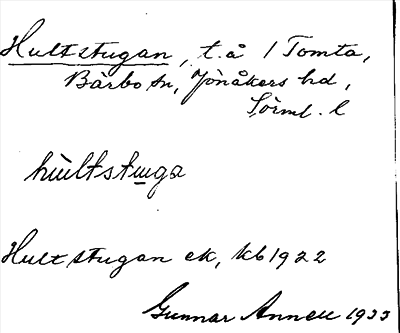 Hultstugan, t. å 1 Tomta,
Bärbo sn, Jönåkers hd,
Sörml. l
hùltstu̲ga
Hultstugan ek, kb 1922
Gunnar Annell 1933